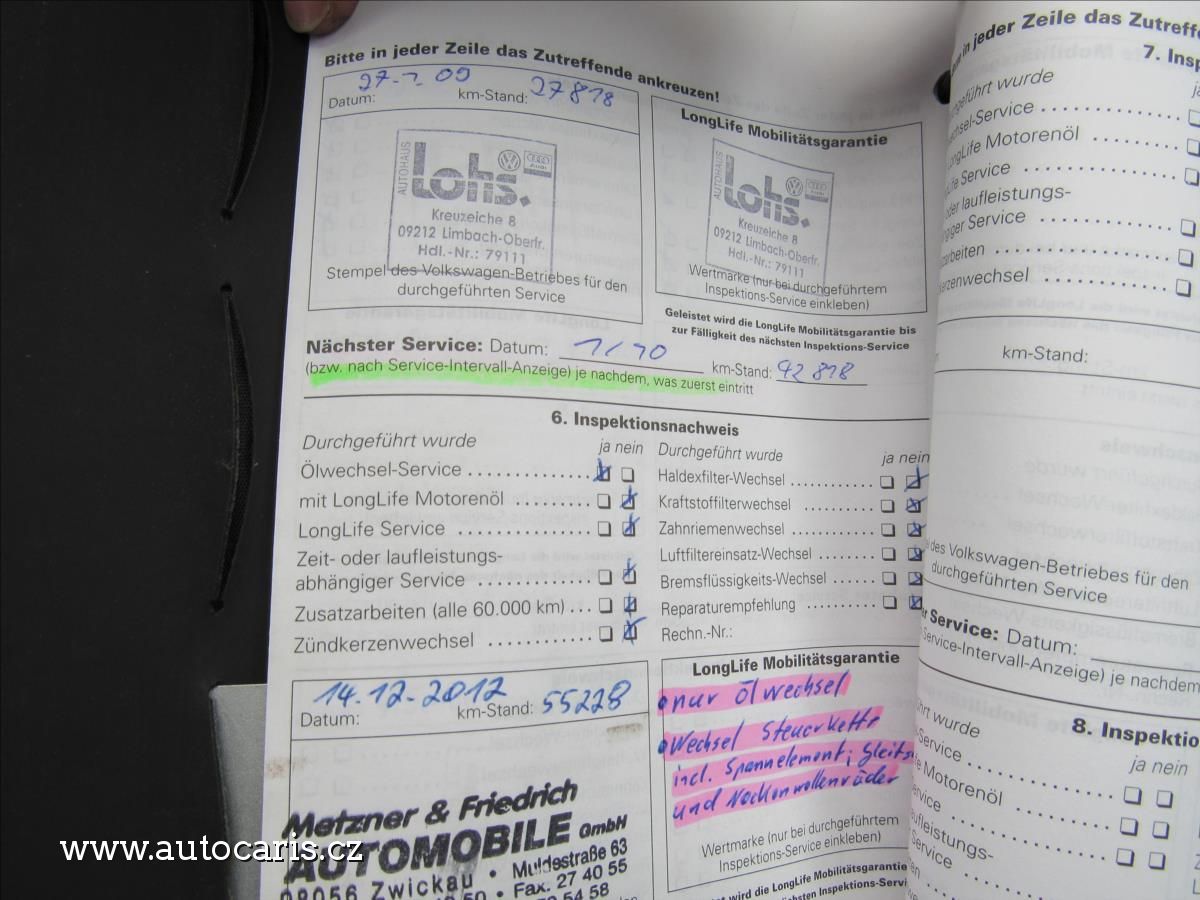 Bitte in jeder Zeile das Zutreffende ankreuzen!
27.1.09 27818
Datum: km-Stand:
AUTOHAUS
Lohs.
Audi
Kreuzeiche 8
09212 Limbach-Oberfr.
Hdl.-Nr.: 79111
Stempel des Volkswagen-Betriebes für den
durchgeführten Service
LongLife Mobilitätsgarantie
AUTOHAUS
Lohs.
Kreuzeiche 8
09212 Limbach-Oberfr.
Hdl.-Nr.: 79111
Wertmarke (nur bei durchgeführtem
Inspektions-Service einkleben)
Geleistet wird die LongLife Mobilitätsgarantie bis
zur Fälligkeit des nächsten Inspektions-Service
Nächster Service: Datum: 1/10 km-Stand: 42 818
(bzw. nach Service-Intervall-Anzeige) je nachdem, was zuerst eintritt
6. Inspektionsnachweis
Durchgeführt wurde ja nein
Ölwechsel-Service
mit LongLife Motorenöl
LongLife Service
Zeit- oder laufleistungs-
abhängiger Service
Zusatzarbeiten (alle 60.000 km)
Zündkerzenwechsel
Durchgeführt wurde ja nein
Haldexfilter-Wechsel
Kraftstoffilterwechsel
Zahnriemenwechsel
Luftfiltereinsatz-Wechsel
Bremsflüssigkeits-Wechsel
Reparaturempfehlung
Rechn.-Nr.:
14.12.2012 55228
Datum: km-Stand:
Metzner & Friedrich
AUTOMOBILE GmbH
08056 Zwickau • Muldestraße 63
50 • Fax. 27 40 55
54 58
LongLife Mobilitätsgarantie
• nur Ölwechsel
• Wechsel Steuerkette
incl. Spannelement, Gleits
und Nockenwellenräder
Wertmarke (nur bei durchgeführtem
Inspektions-Service einkleben)
wird die LongLife Mobilitätsgarantie
des nächsten Inspektions-Servi
in jeder Zeile das Zutreffe
7. Insp
geführt wurde ja
hsel-Service
LongLife Motorenöl
ife Service
oder laufleistungs-
giger Service
arbeiten
kerzenwechsel
km-Stand:
des Volkswagen-Betriebes für den
durchgeführten Service
r Service: Datum:
Service-Intervall-Anzeige) je nachdem
8. Inspektio
ührt wurde ja nein
-Service
e Motorenöl
ervice
ufleistungs-
Service
www.autocaris.cz